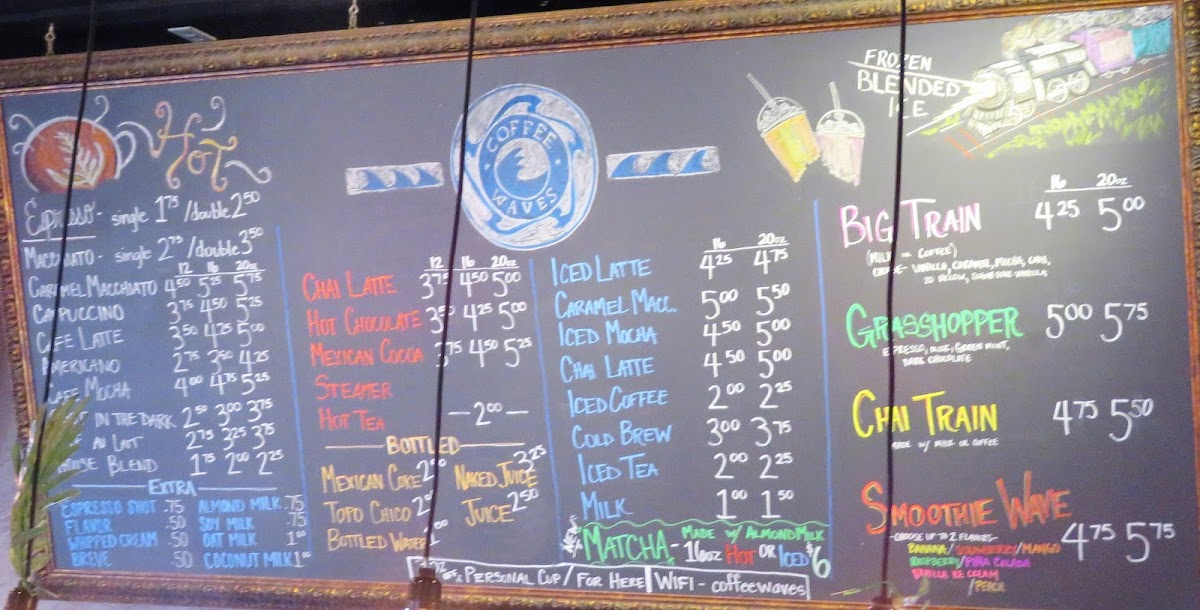 HOT
ESPRESSO- single 1.75 /double 2.50
MACCHIATO- single 2.75 /double 3.50
12 16 20oz
CARAMEL MACCHIATO 4.50 5.25 5.75
CAPPUCCINO 3.75 4.50 5.25
CAFE LATTE 3.50 4.25 5.00
AMERICANO 2.75 3.50 4.25
CAFE MOCHA 4.00 4.75 5.25
IN THE DARK 2.50 3.00 3.75
AU LAIT 2.75 3.25 3.75
HOUSE BLEND 1.75 2.00 2.25
EXTRA
ESPRESSO SHOT .75 ALMOND MILK .75
FLAVOR .50 SOY MILK .75
WHIPPED CREAM .50 OAT MILK 1.00
BREVE .50 COCONUT MILK 1.00
COFFEE
WAVES
12 16 20oz
CHAI LATTE 3.75 4.50 5.00
HOT CHOCOLATE 3.50 4.25 5.00
MEXICAN COCOA 3.75 4.50 5.25
STEAMER
HOT TEA —2.00—
BOTTLED
MEXICAN COKE 2.50 NAKED JUICE 3.25
TOPO CHICO JUICE 2.50
BOTTLED WATER
16 20oz
ICED LATTE 4.25 4.75
CARAMEL MACC. 5.00 5.50
ICED MOCHA 4.50 5.00
CHAI LATTE 4.50 5.00
ICED COFFEE 2.00 2.25
COLD BREW 3.00 3.75
ICED TEA 2.00 2.25
MILK 1.00 1.50
MATCHA- MADE W/ ALMOND MILK
16oz HOT OR ICED $6
PERSONAL CUP / FOR HERE WIFI - coffeewaves
FROZEN
BLENDED
ICE
16 20oz
BIG TRAIN 4.25 5.00
(MILK OR COFFEE)
CHOOSE- VANILLA, CARAMEL, MOCHA,
GRASSHOPPER 5.00 5.75
ESPRESSO, MILK, GREEN MINT,
DARK CHOCOLATE
CHAI TRAIN 4.75 5.50
MADE W/ MILK OR COFFEE
SMOOTHIE WAVE 4.75 5.75
-CHOOSE UP TO 2 FLAVORS-
BANANA/STRAWBERRY/MANGO
RASPBERRY/PINA COLADA
VANILLA ICE CREAM
/PEACH